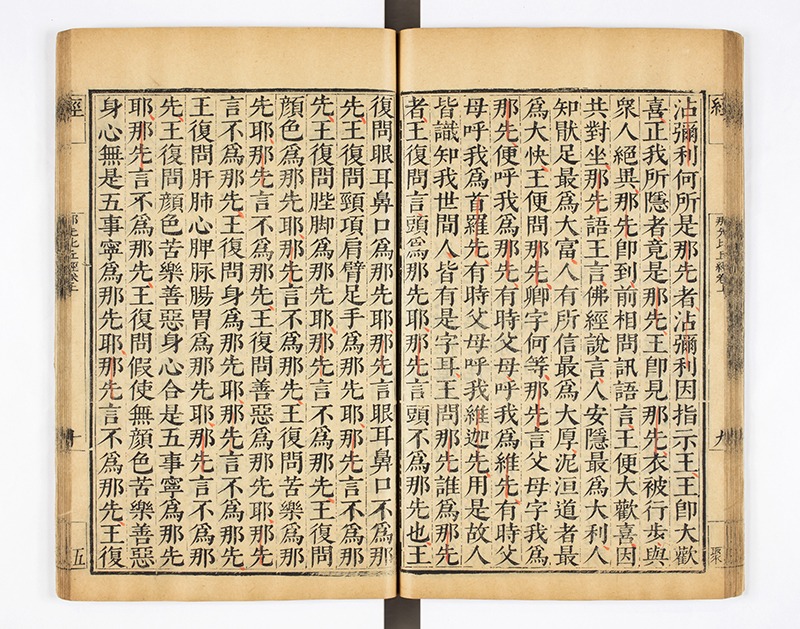 經
那先比丘經卷上
九
沾彌利何所是那先者沾彌利因指示王王卽大歡
喜正我所隱者竟是那先王卽見那先衣被行步與
衆人絕異那先卽到前相問訊語言王便大歡喜因
共對坐那先語王言佛經說言人安隱最爲大利人
知猒足最爲大富人有所信最爲大厚泥洹道者最
爲大快王便問那先卿字何等那先言父母字我爲
那先便呼我爲那先有時父母呼我爲維先有時父
母呼我爲首羅先有時父母呼我維迦先用是故人
皆識知我世間人皆有是字耳王問那先誰爲那先
者王復問言頭爲那先耶那先言頭不爲那先也王
復問眼耳鼻口爲那先耶那先言眼耳鼻口不爲那
先王復問頸項肩臂足手爲那先耶那先言不爲那
先王復問脞脚爲那先耶那先言不爲那先王復問
顏色爲那先耶那先言不爲那先王復問苦樂爲那
先耶那先言不爲那先王復問善惡爲那先耶那先
言不爲那先王復問身爲那先耶那先言不爲那先
王復問肝肺心脾脉腸胃爲那先耶那先言不爲那
先王復問顏色苦樂善惡身心合是五事寧爲那先
耶那先言不爲那先王復問假使無顏色苦樂善惡
身心無是五事寧爲那先耶那先言不爲那先王復
經
那先比丘經卷上
十
五